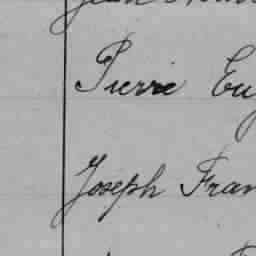 Jean
Pierre Eu
Joseph Fran